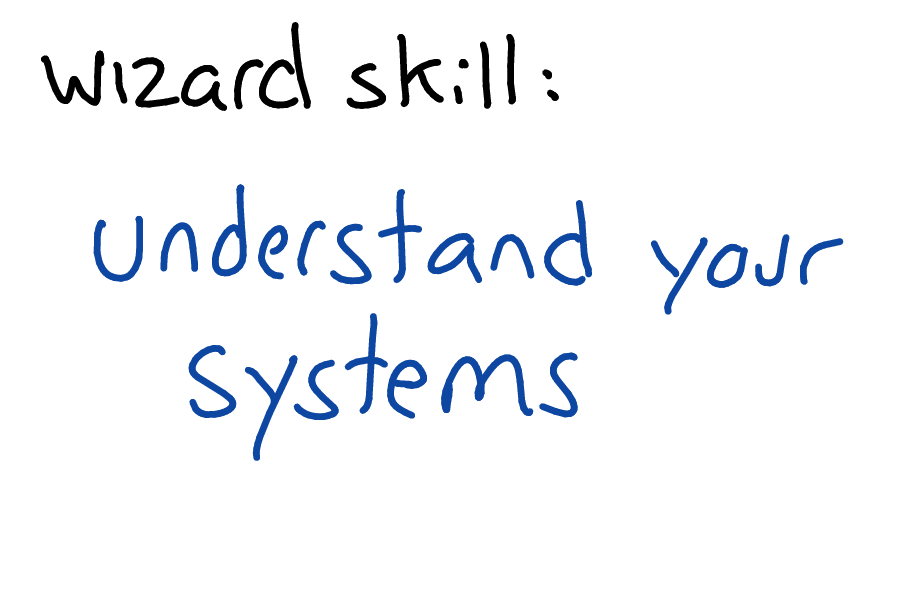 wizard skill:
understand your
systems